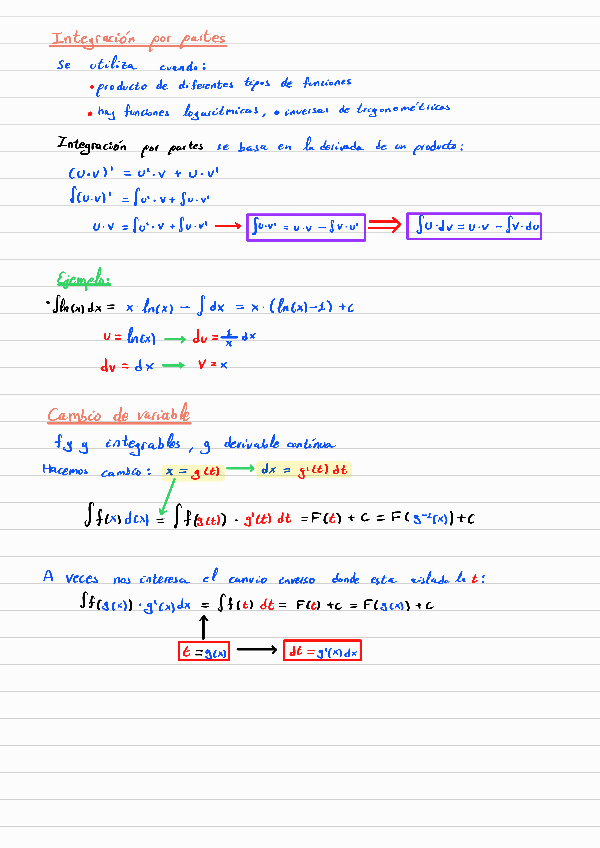 Integración por partes
Se utiliza cuando:
• producto de diferentes tipos de funciones
• hay funciones logarítmicas, o inversas de trigonométricas
Integración por partes se basa en la derivada de un producto:
(u·v)' = u'·v + u·v'
∫(u·v)' = ∫u'·v + ∫u·v'
u·v = ∫u'·v + ∫u·v' → ∫u·v' = u·v − ∫v·u' ⇒ ∫u·dv = u·v − ∫v·du
Ejemplo:
• ∫ln(x) dx = x·ln(x) − ∫dx = x·(ln(x)−1) + c
u = ln(x) → du = 1/x dx
dv = dx → v = x
Cambio de variable
f y g integrables, g derivable continua
Hacemos cambio: x = g(t) → dx = g'(t) dt
∫f(x) d(x) = ∫f(g(t))·g'(t) dt = F(t) + C = F(g⁻¹(x)) + C
A veces nos interesa el canvio inverso donde esta aislada la t:
∫f(g(x))·g'(x)dx = ∫f(t) dt = F(t) + C = F(g(x)) + C
t = g(x) → dt = g'(x) dx